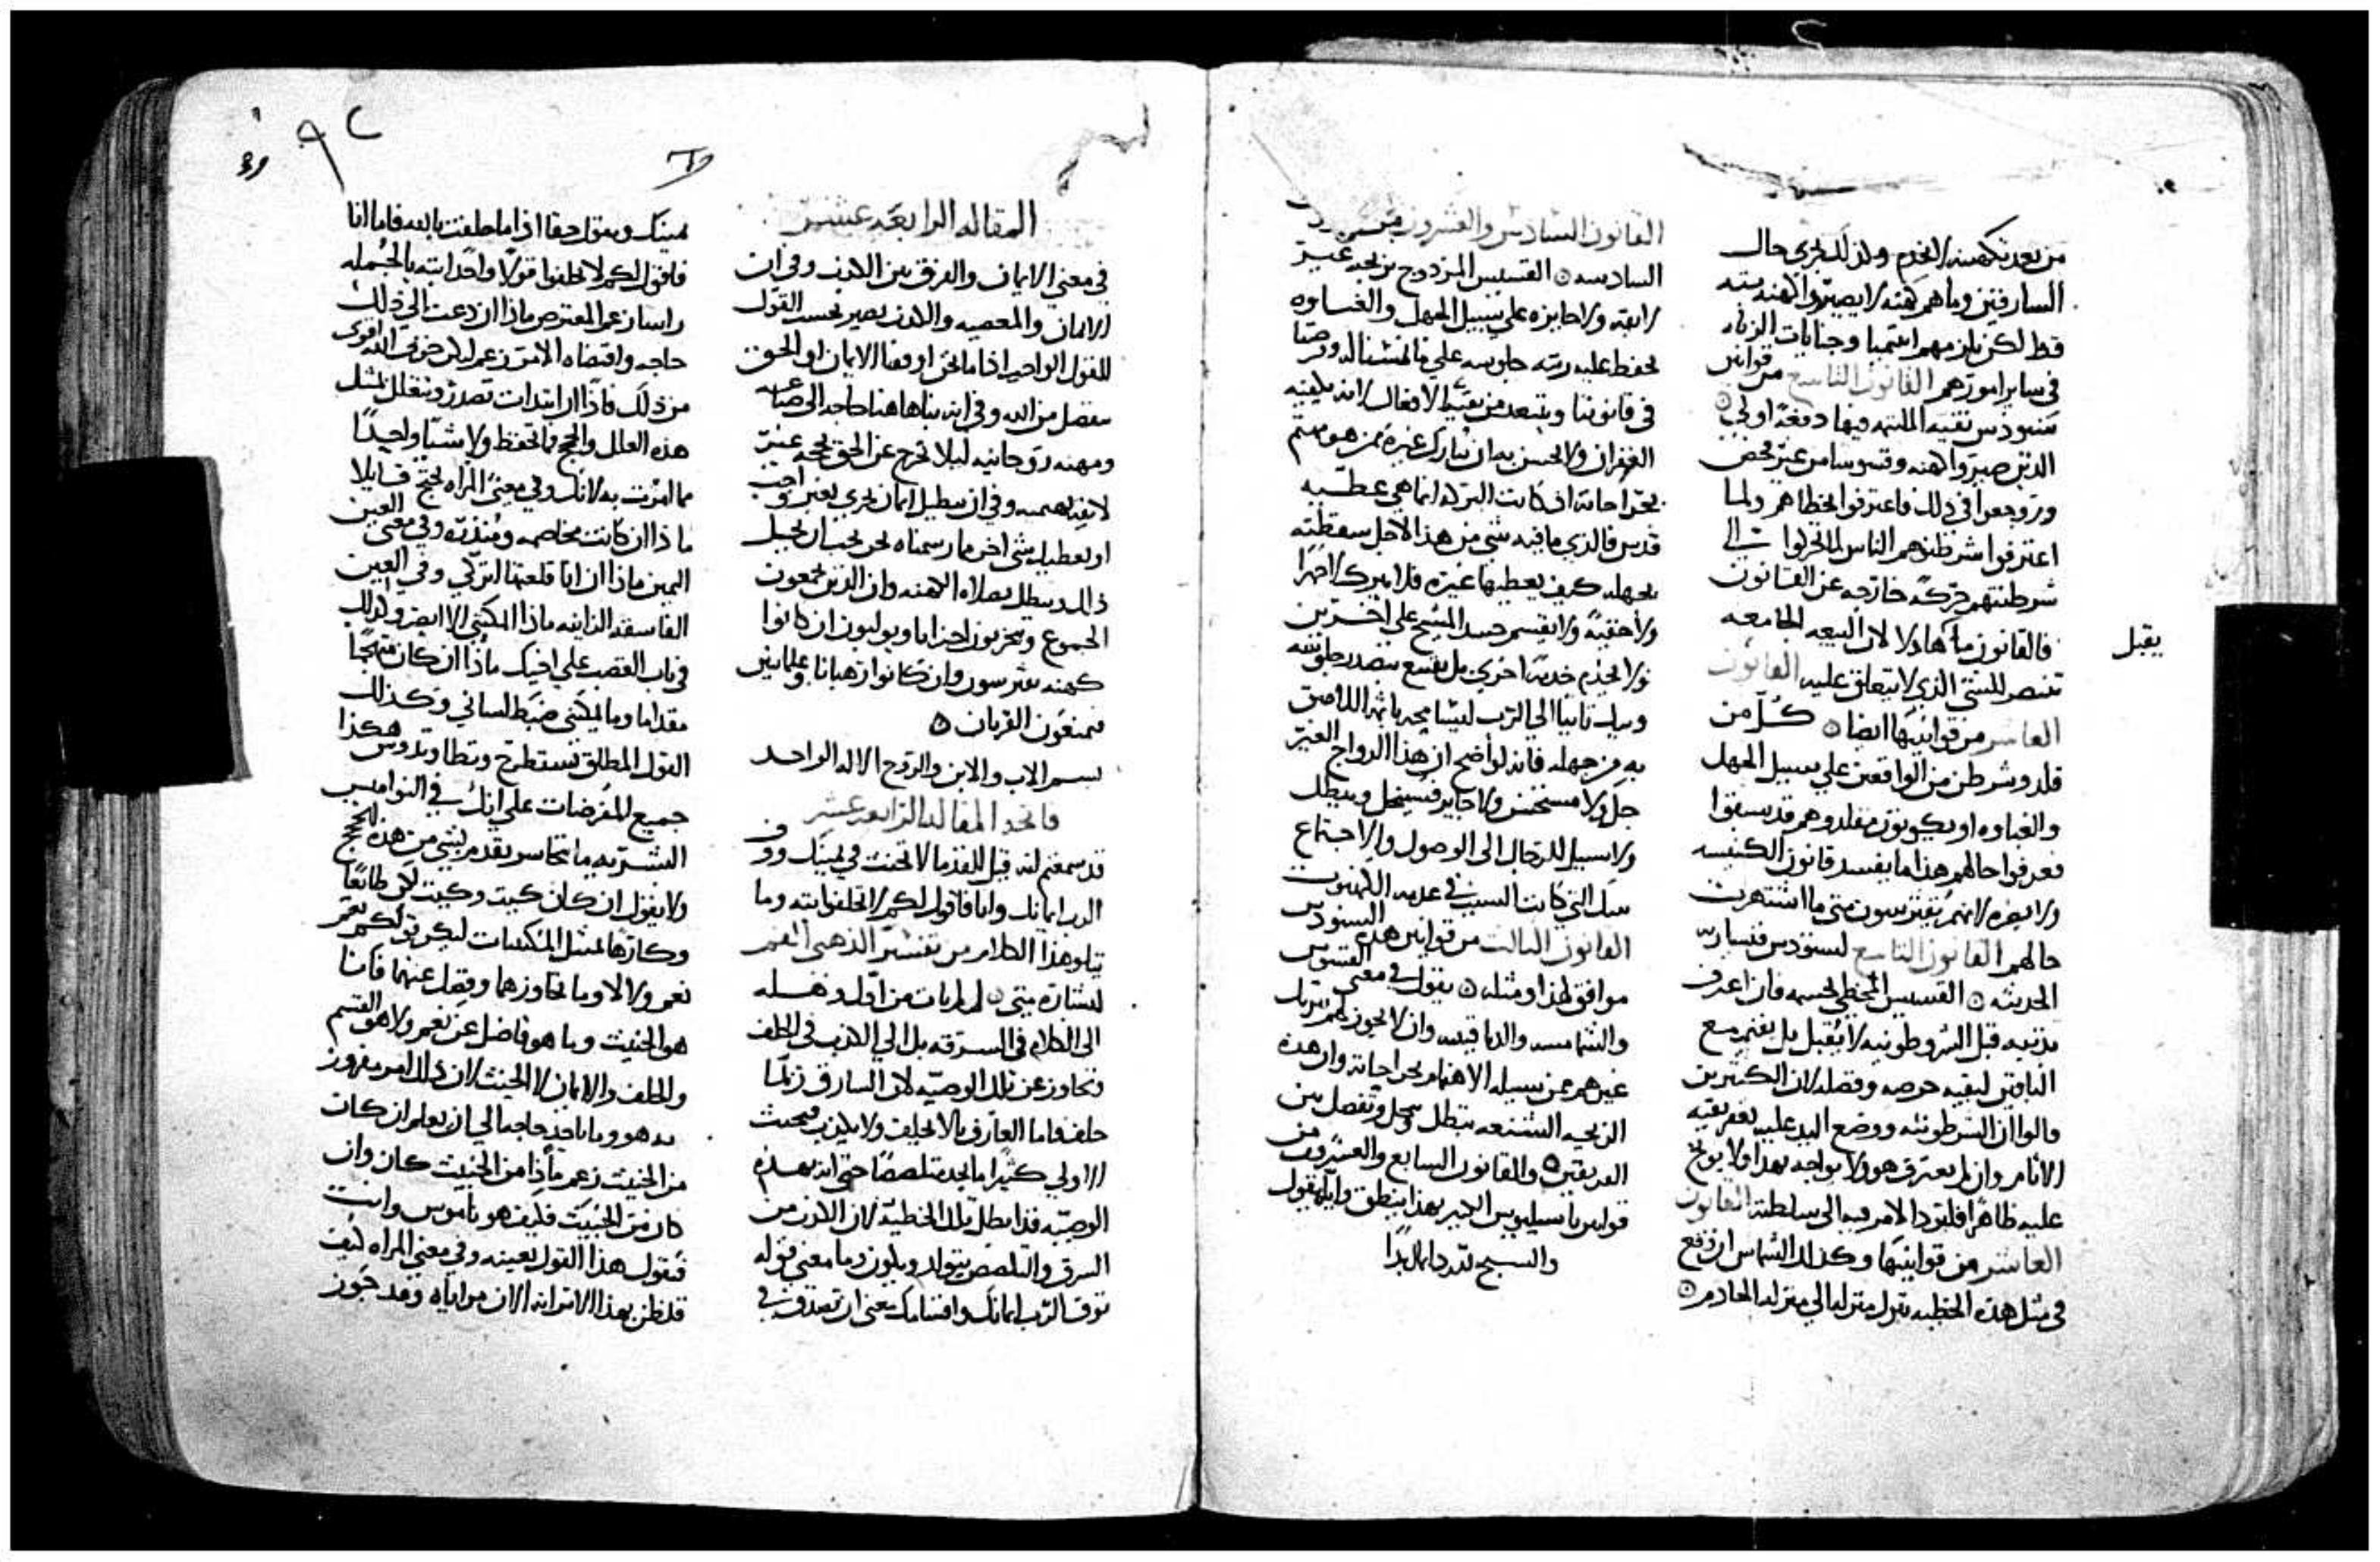 من بعد تكهينه الخدم ولذلك يجري حال
السارقين وما هم كهنه لا يصيروا كهنه بته
قط لكن يلزمهم ايتميا وجنايات الزناه
في ساير امورهم القانون التاسع من قوانين
سنودس نقيه الملتيمه فيها دفعة اولي
الذين صيروا كهنه وقسوسا من غير فحص
وروجعوا في ذلك فاعترفوا بخطاهم ولما
اعترفوا شرطنوهم الناس لما تحركوا الي
شرطنتهم حركة خارجه عن القانون
فالقانون ما هاولا لان البيعه الجامعه
يقبل
تنتصر للشي الذي لا يتعلق عليه القانون
العاشر من قوانينها ايضا كل من
قلد وشرطن من الواقعين علي سبيل الجهل
والغباوه او يكونون مقلدوهم قد سبقوا
فعرفوا حالهم هذا ما يفسد قانون الكنيسه
ولا يضره لانهم يقترسون متي ما اشتهرت
حالهم القانون التاسع لسنودس قيساريه
الحديثه القسيس المخطي بجسمه فان اعترف
مرتبه قبل الشرطونيه لا يقبل بل يقيم مع
الباقين لبقيه حرصه وفضله لان الكثيرين
قالوا ان الشرطونيه ووضع اليد عليه تغفر بقيه
الاثام وان لم يعترف هو ولا يواجه بهذا ولا يوبخ
عليه ظاهرا فليرد الامر فيه الي سلطته القانون
العاشر من قوانينها وكذلك الشماس ان وقع
في مثل هذه الخطيه ينزل منزله الي منزله الخادم
القانون السادس والعشرون من
السادسه القسيس المزدوج بزيجه غير
لايقه ولا جايزه علي سبيل الجهل والغباوه
يحفظ عليه رتبه جلوسه علي ما
في قانوننا ويبتعد من بقيه الافعال لانه يكفيه
الغفران ولا يحسن به ان يبارك غيره من هو مهتم
بجراحاته اذ كانت البركه انما هي عطيه
قدس فالذي ما فيه شي من هذا لاجل سقطته
بجهله كيف يعطيها غيره فلا يبرك لا جهرا
ولا خفية ولا يقسم جسد المسيح علي اخرين
ولا يخدم خدمة اخري بل يقنع بتصدر جلوسه
ويبك تايبا الي الرب ليسامحه باثمه اللاصق
به من جهله فانه لواضح ان هذا الزواج الغير
جل ولا مستحسن ولا جايز فسينحل ويبطل
ولا سبيل للرجال الي الوصول والاجتماع
بتلك التي كانت السبب في عدمه الكهنوت
القانون الثالث من قوانين هذه السنودس
موافق لهذا ومثله يقول في معني القسوس
والشمامسه والدياقنيسه وان لا يجوز لهم تبريك
غيرهم من سبيله الاهتمام بجراحاته وان هذه
الزيجه الشنعه تبطل وتحل وتفصل بين
الفريقين والقانون السابع والعشرون من
قوانين باسيليوس الكبير بهذا ينطق واياه يقول
والسبح لله دايما ابدا
المقاله الرابعه عشر
في معني الايمان والفرق بين الكذب وفي ان
الايمان والمعصيه والكذب يصير بحسب القول
للقول الواحد اذا ما نحن اوقفنا الايمان او الحق
بفضل من الله وفي انه بنا هاهنا حاجه الي صناعه
ومهنه روحانيه ليلا نخرج عن الحق بحجه غير
لايقه وفي ان تبطيل ايمان يجري بغير واجب
او تعطيل شي اخر مما رسمناه نحن يجب ان يحل
ذلك ويبطل بصلاه الكهنه وان الذين يجمعون
الجموع ويتحزبون احزابا ويولبون ان كانوا
كهنه يقترسون وان كانوا رهبانا وعلمانيين
يمنعون القربان
بسم الاب والابن والروح الاله الواحد
فاتحه المقاله الرابعه عشر
قد سمعتم انه قيل للقدما لا تحنث في يمينك ووف
الرب ايمانك وانا فاقول لكم لا تحلفوا بته وما
يتلو هذا الكلام من تفسير الذهبي الفم
لبشاره متي لم يات من اول وهله
الي الكلام في السرقه بل الي الكذب في الحلف
وتجاوز عن تلك الوصيه لان السارق ربما
حلف فاما العارف بالا يحلف ولا يكذب فبحيث
الاولي كثيرا ما يجد متلصصا حتي انه بهذه
الوصيه قد ابطل تلك الخطيه لان الكذب من
السرق والتلصص يتولد ويكون وما معني قوله
توف الرب ايمانك واقسامك معني ان تصدق في
يمينك وتقول حقا اذا ما حلفت بالله فاما انا
فاقول لكم لا تحلفوا قولا واحدا بته بالجمله
راسا زعم المعترض ماذا ان دعت الي ذلك
حاجه واقتضاه الامر زعم ليكن خوف الله اقوي
من ذلك فاذا ان ابتدات تصدر وتتعلل بمثل
هذه العلل والحجج ما تحفظ ولا شيا واحدا
مما امرت به لانك وفي معني المراه تحتج قايلا
ماذا ان كانت مخاصمه ومبذره وفي معني العين
اليمين ماذا ان انا قلعتها اتركي وفي العين
الفاسقه الزانيه ماذا ايمكنني الا ابصر وكذلك
في باب الغضب علي اخيك ماذا ان كان متهجما
مقداما وما يمكنني ضبط لساني وكذلك
القول المطلق تستطرح وتطا وتدوس هكذا
جميع المفرضات علي انك في النواميس
البشريه ما تتجاسر بقدم بشي من هذه الحجج
ولا تقول ان كان كيت وكيت لكن طايعا
وكارها تمثل المكتبات ليكن قولكم نعم
نعم ولا لا وما تجاوزهما وفضل عنهما فانما
هو الخبيث وما هو فاضل عن نعم ولا هو القسم
والحلف والايمان لا الحنث لان ذلك امر مفروز
به هو وما باحد حاجه الي ان يعلم ان كان
من الخبيث زعم ماذا من الخبيث كان وان
كان من الخبيث فكيف هو ناموس وانت
فتقول هذا القول بعينه وفي معني المراه كيف
قد ظن بهذا الاثر انه الان مراباه وقد جوز